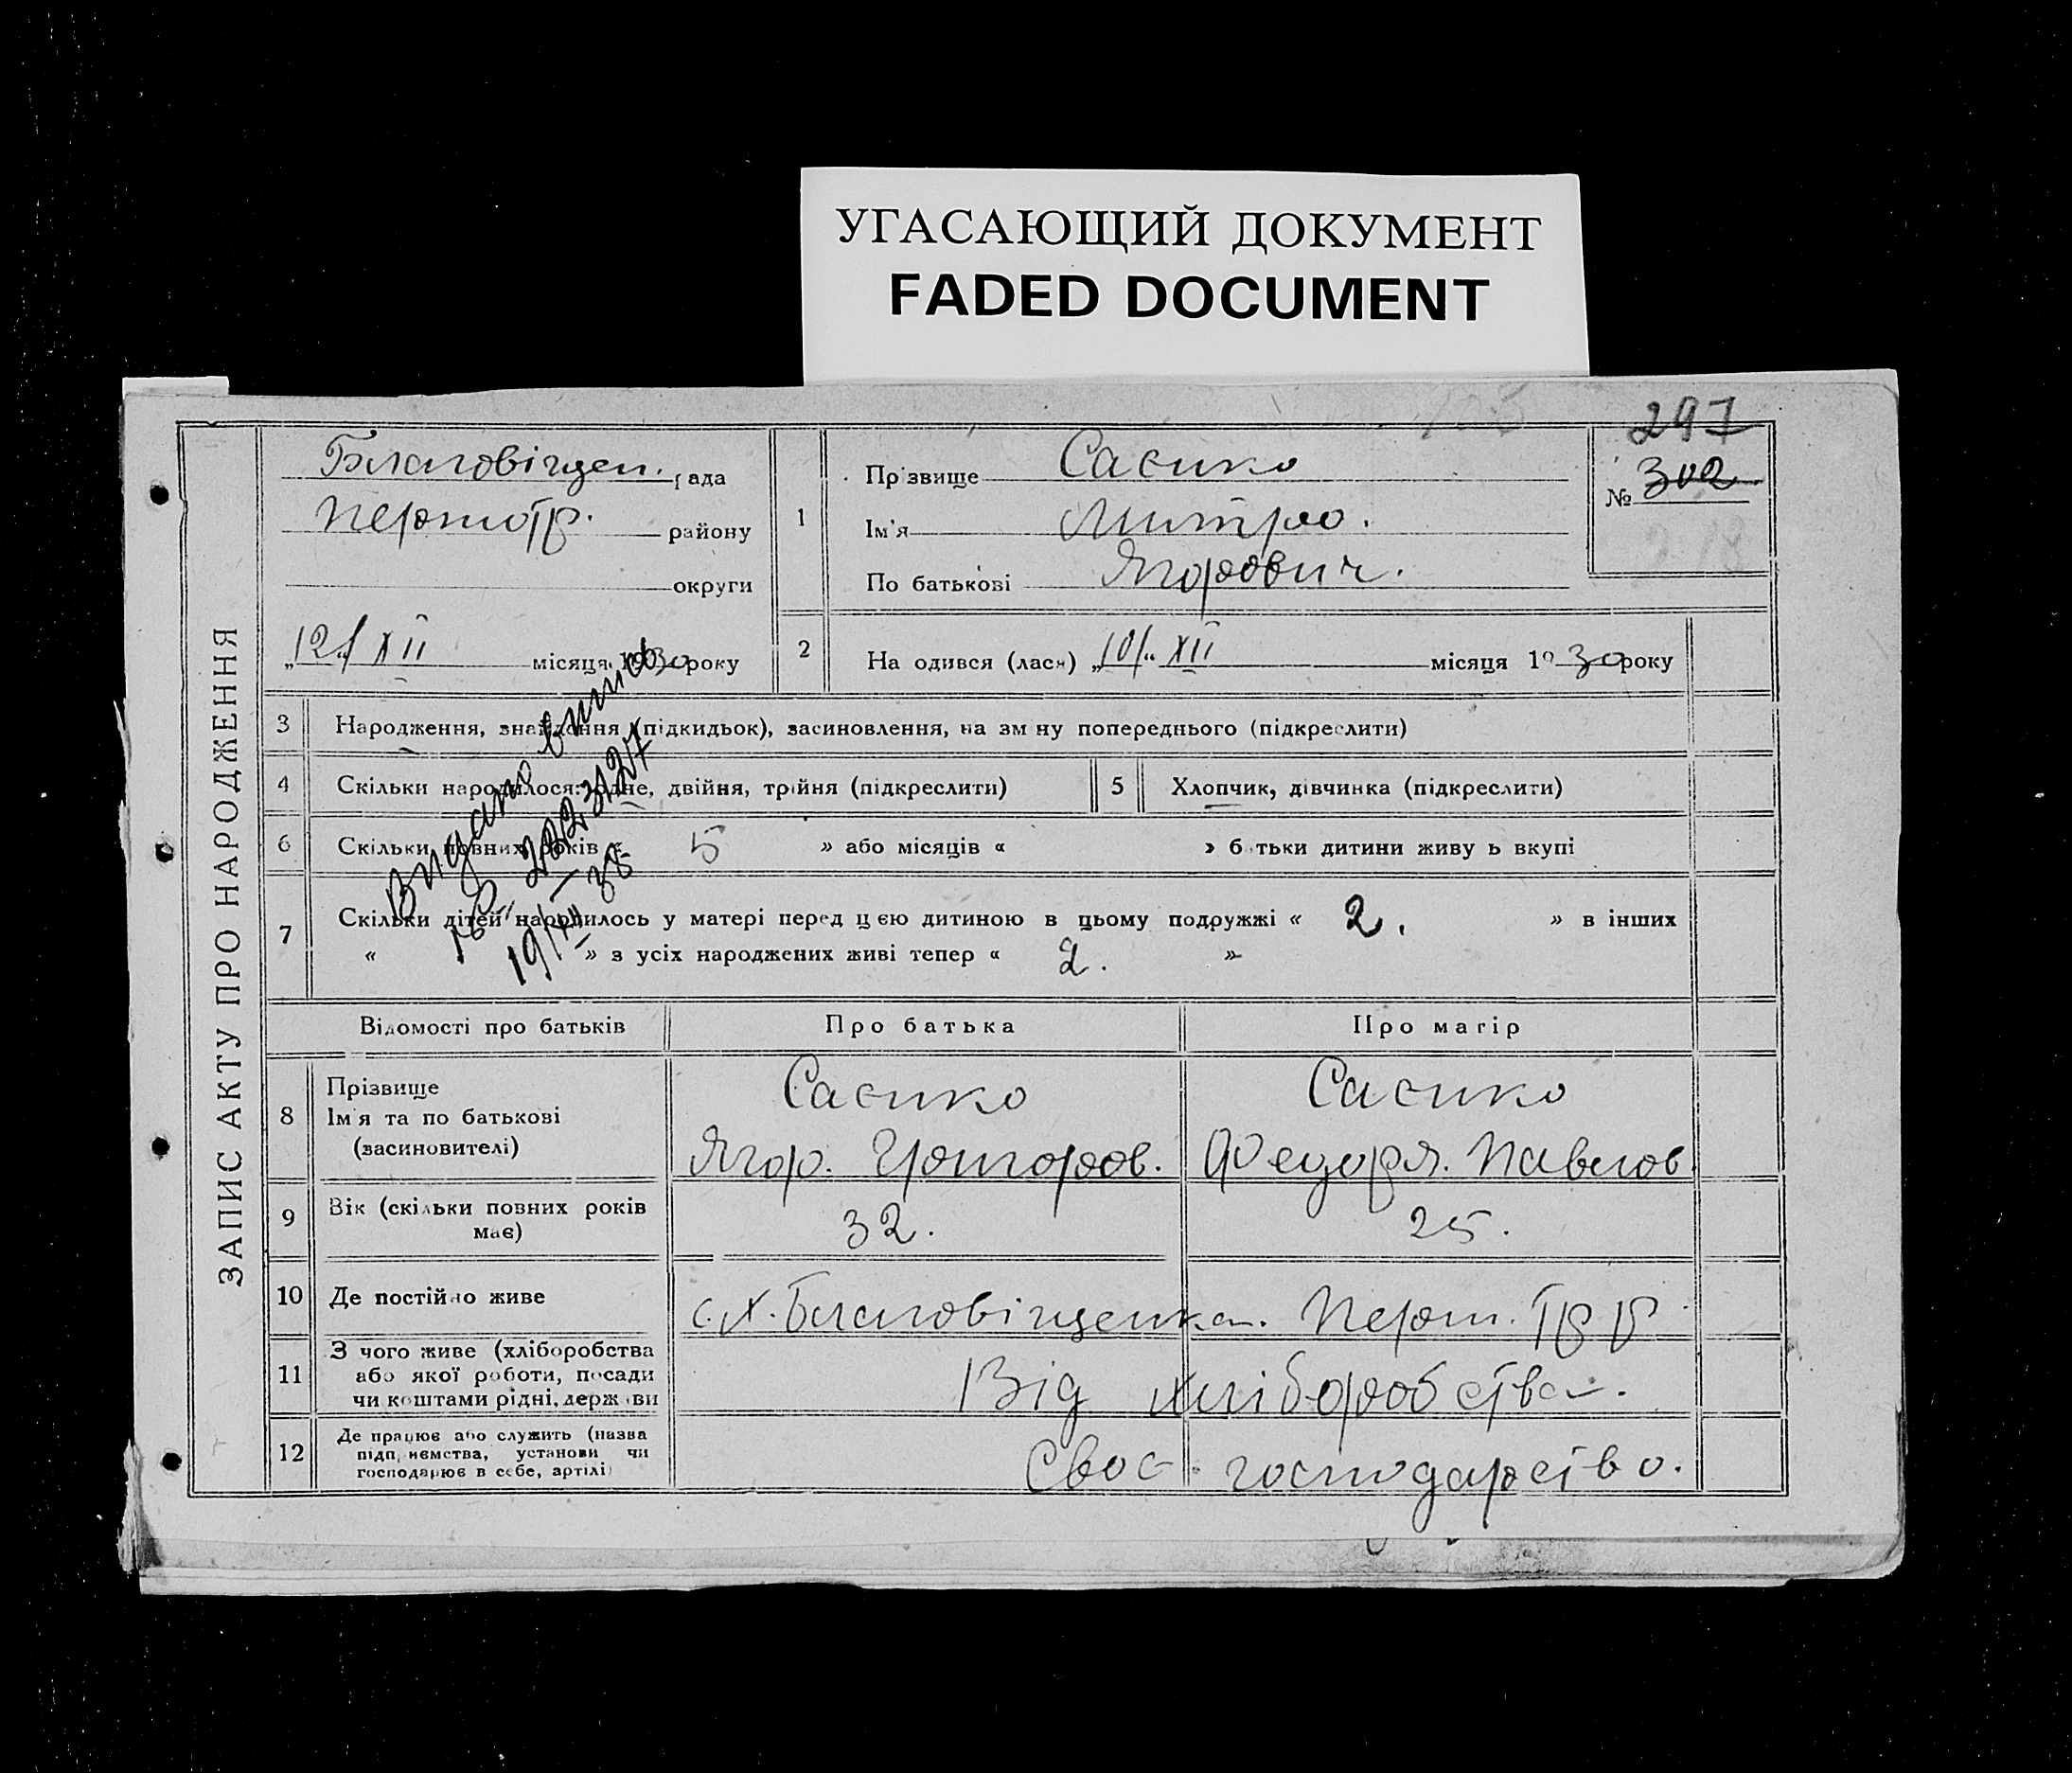 УГАСАЮЩИЙ ДОКУМЕНТ
FADED DOCUMENT
297
№ 302
ЗАПИС АКТУ ПРО НАРОДЖЕННЯ
Благовіщен. рада
району
округи
„12“ XII місяця 1930 року
1
Прізвище Сасико
Ім'я Митро.
По батькові Ягорович.
2 На одився (лася) „10“ XII місяця 1930 року
3 Народження, знайдення (підкидьок), засиновлення, на зм ну попереднього (підкреслити)
4 Скільки народилося: одне, двійня, трійня (підкреслити)
5 Хлопчик, дівчинка (підкреслити)
6 Скільки повних років « 5 » або місяців « » б тьки дитини живу ь вкупі
7 Скільки дітей народилось у матері перед цією дитиною в цьому подружжі « 2. » в інших
« » з усіх народжених живі тепер « 2. »
Видано
19
38
Відомості про батьків
Про батька
Про матір
8 Прізвище
Ім'я та по батькові
(засиновителі)
Сасико
Ягор. Григоров.
Сасико
Федоря. Павлов.
9 Вік (скільки повних років
має)
32.
25.
10 Де постійно живе
с. Х. Благовіщенка.
11 З чого живе (хліборобства
або якої роботи, посади
чи коштами рідні, держави
Від хліборобства.
12 Де працює або служить (назва
підприємства, установи чи
господарює в себе, артілі)
Своє господарство.